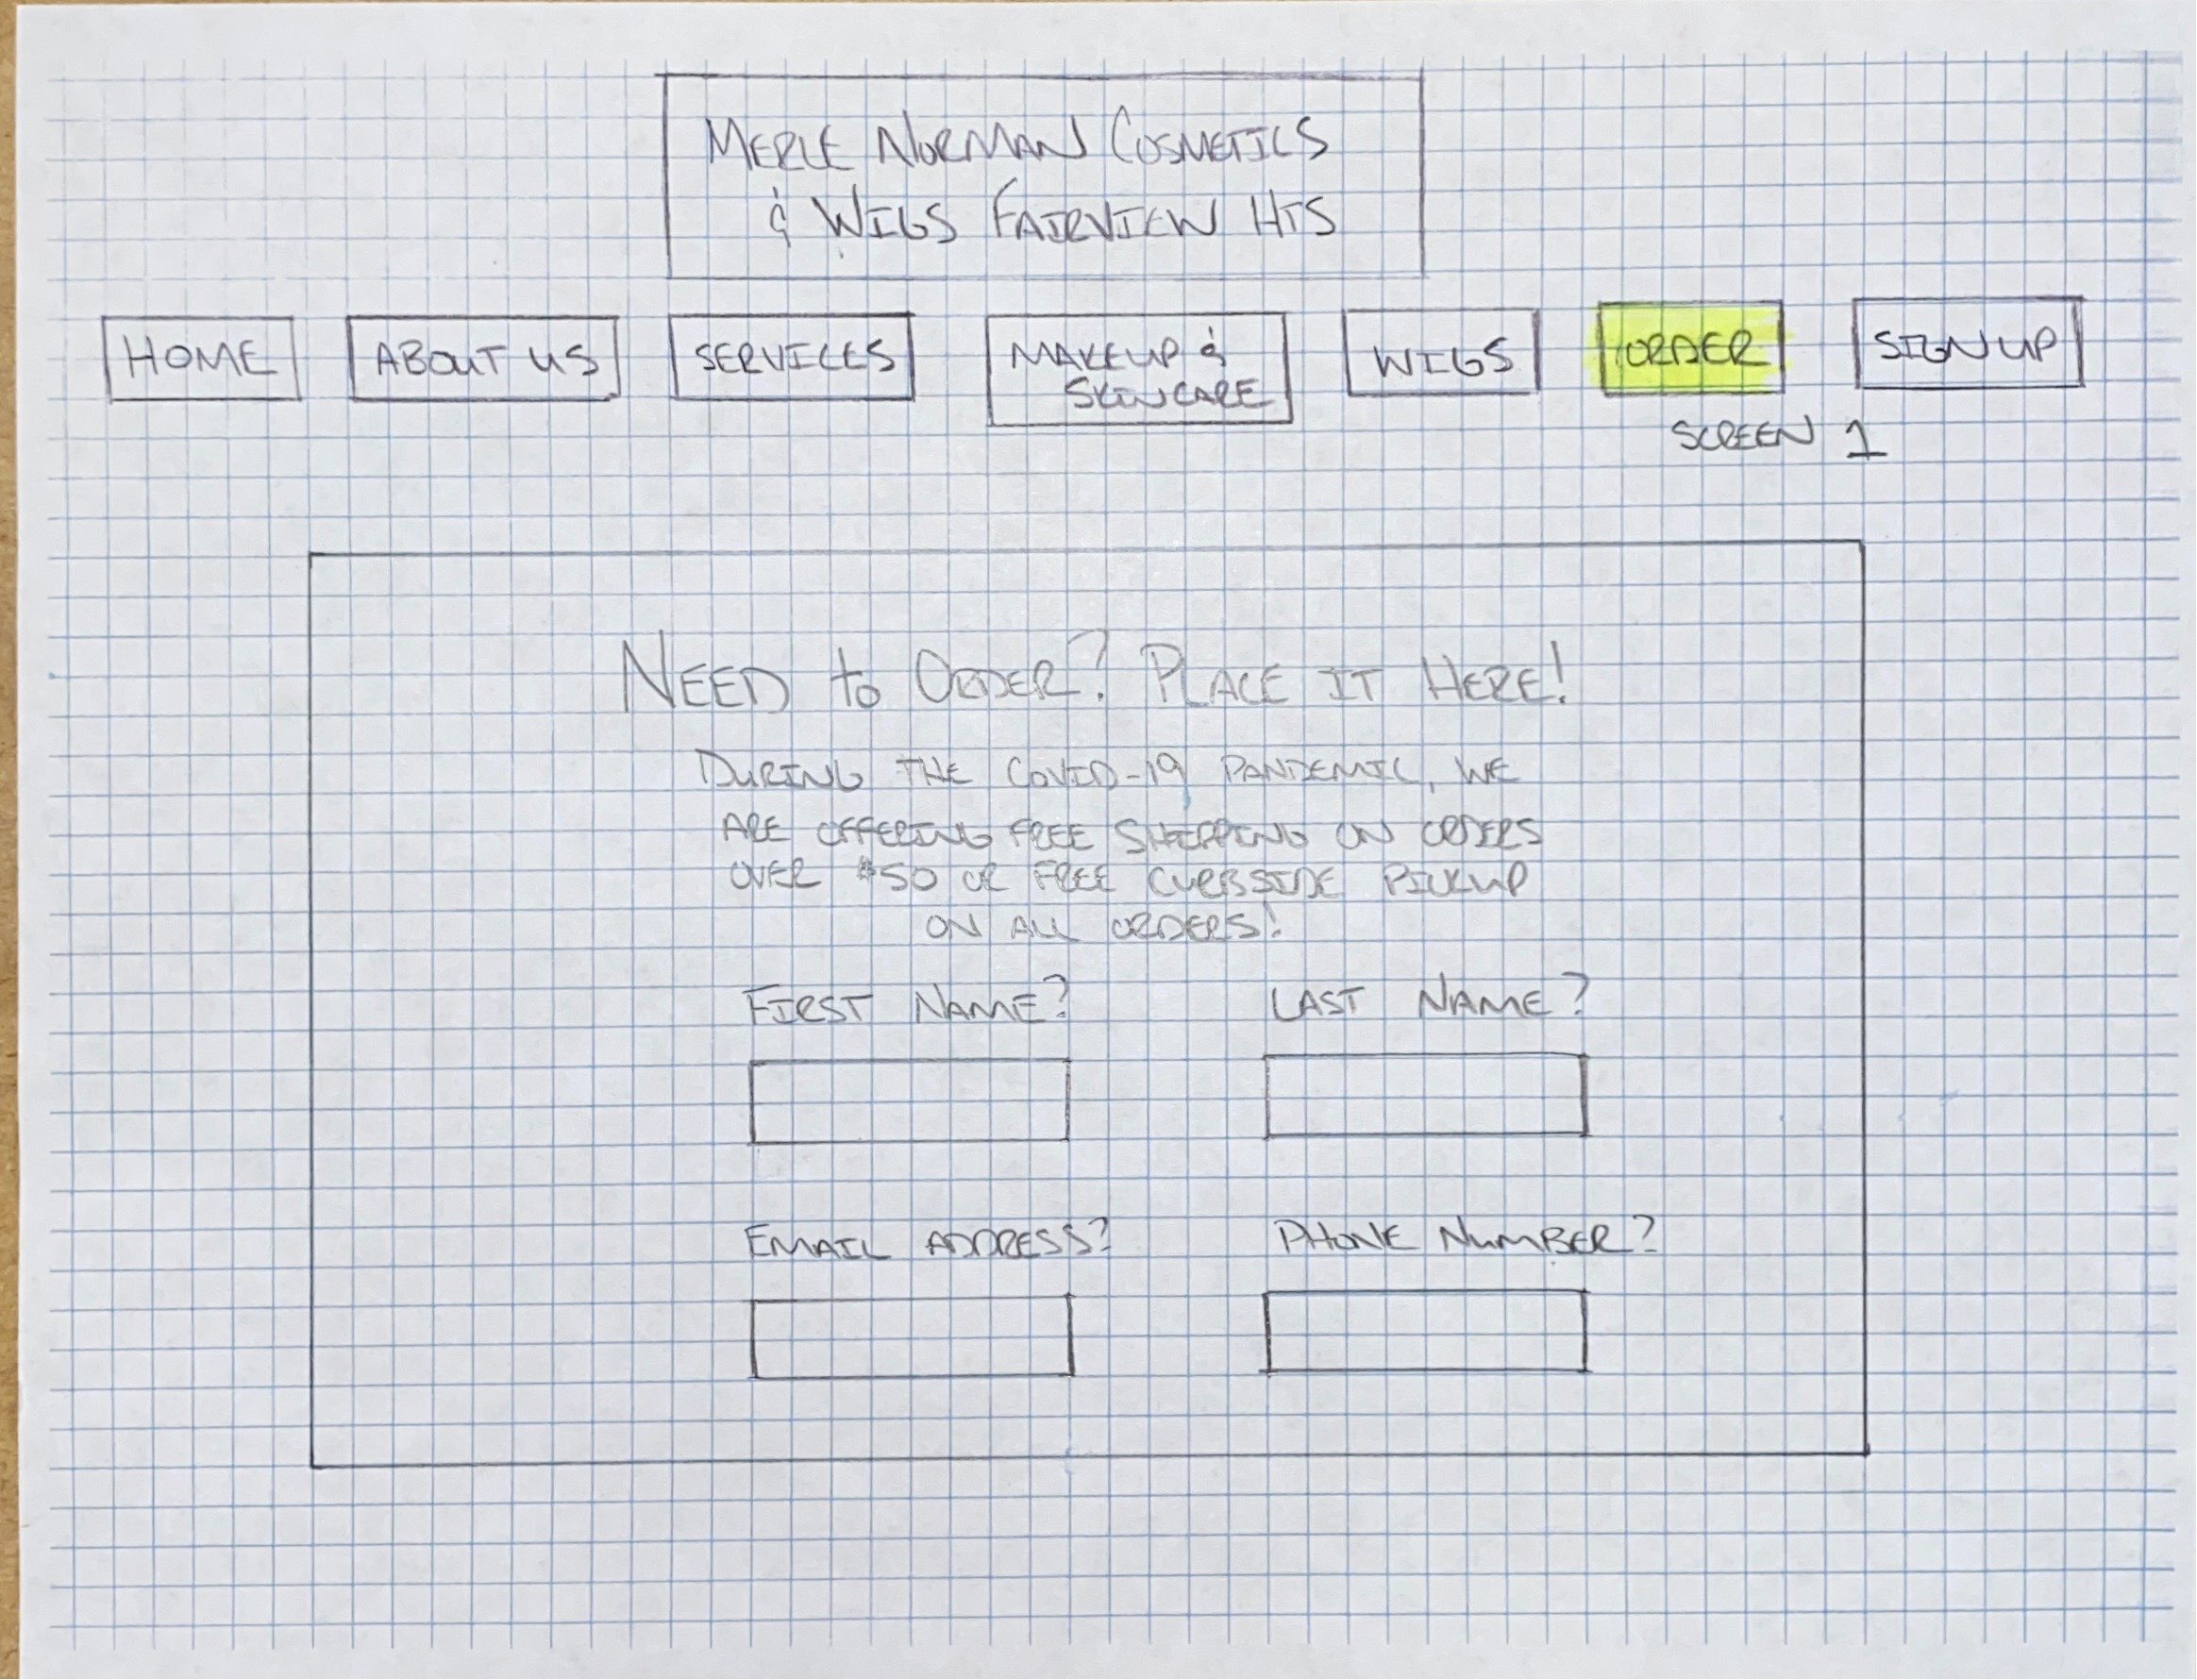 MERLE NORMAN COSMETICS
& WIGS FAIRVIEW HTS
HOME
ABOUT US
SERVICES
MAKEUP &
SKINCARE
WIGS
ORDER
SIGN UP
SCREEN 1
NEED to ORDER? PLACE IT HERE!
DURING THE COVID-19 PANDEMIC, WE
ARE OFFERING FREE SHIPPING ON ORDERS
OVER $50 OR FREE CURBSIDE PICKUP
ON ALL ORDERS!
FIRST NAME? LAST NAME?
EMAIL ADDRESS? PHONE NUMBER?